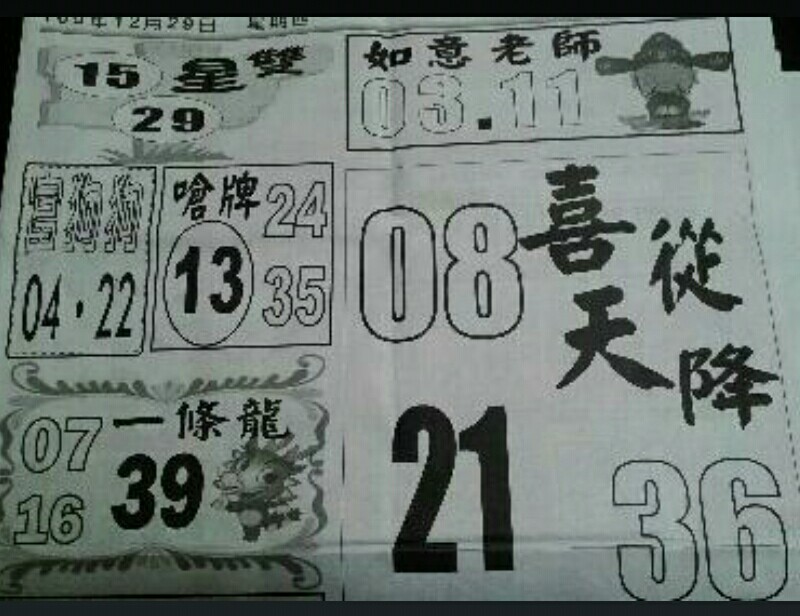 105年12月29日 星期四
15 星雙
29
如意老師
03.11
嗆牌 24
13 35
04.22
喜從天降
08
21
36
一條龍
07
39
16